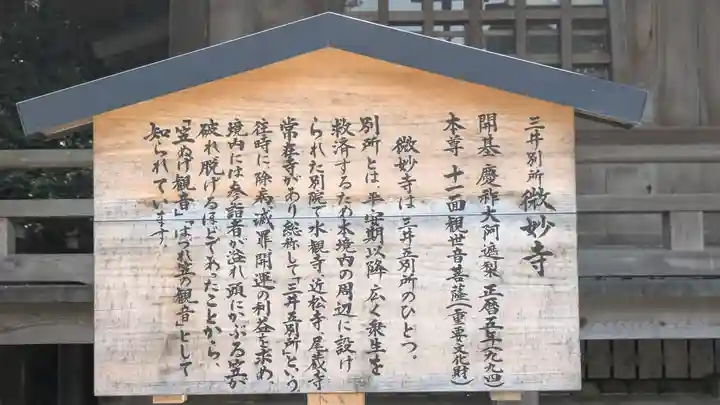 三井別所 微妙寺
開基 慶祚大阿遮梨 正暦五年(九九四)
本尊 十一面観世音菩薩(重要文化財)
微妙寺は三井五別所のひとつ。
別所とは、平安期以降広く衆生を
救済するため本境内の周辺に設け
られた別院で水観寺・近松寺・尾蔵寺・
常在寺があり総称して「三井五別所」という
往時に除病滅罪開運の利益を求め、
境内には参詣者が溢れ頭にかぶる笠が
破れ脱げるほどぎわったことから、
「笠ぬげ観音」「はづれ笠の観音」として
知られています。